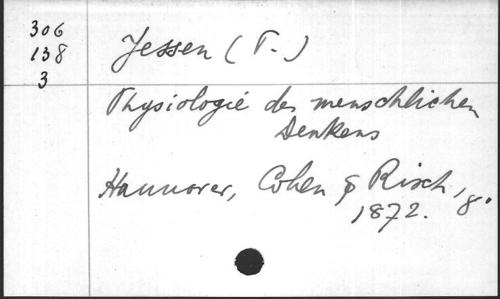 306
138
3
Jessen (P.)
Physiologie des menschlichen
Denkens
Hannover, Cohen & Risch, 8°
1872.